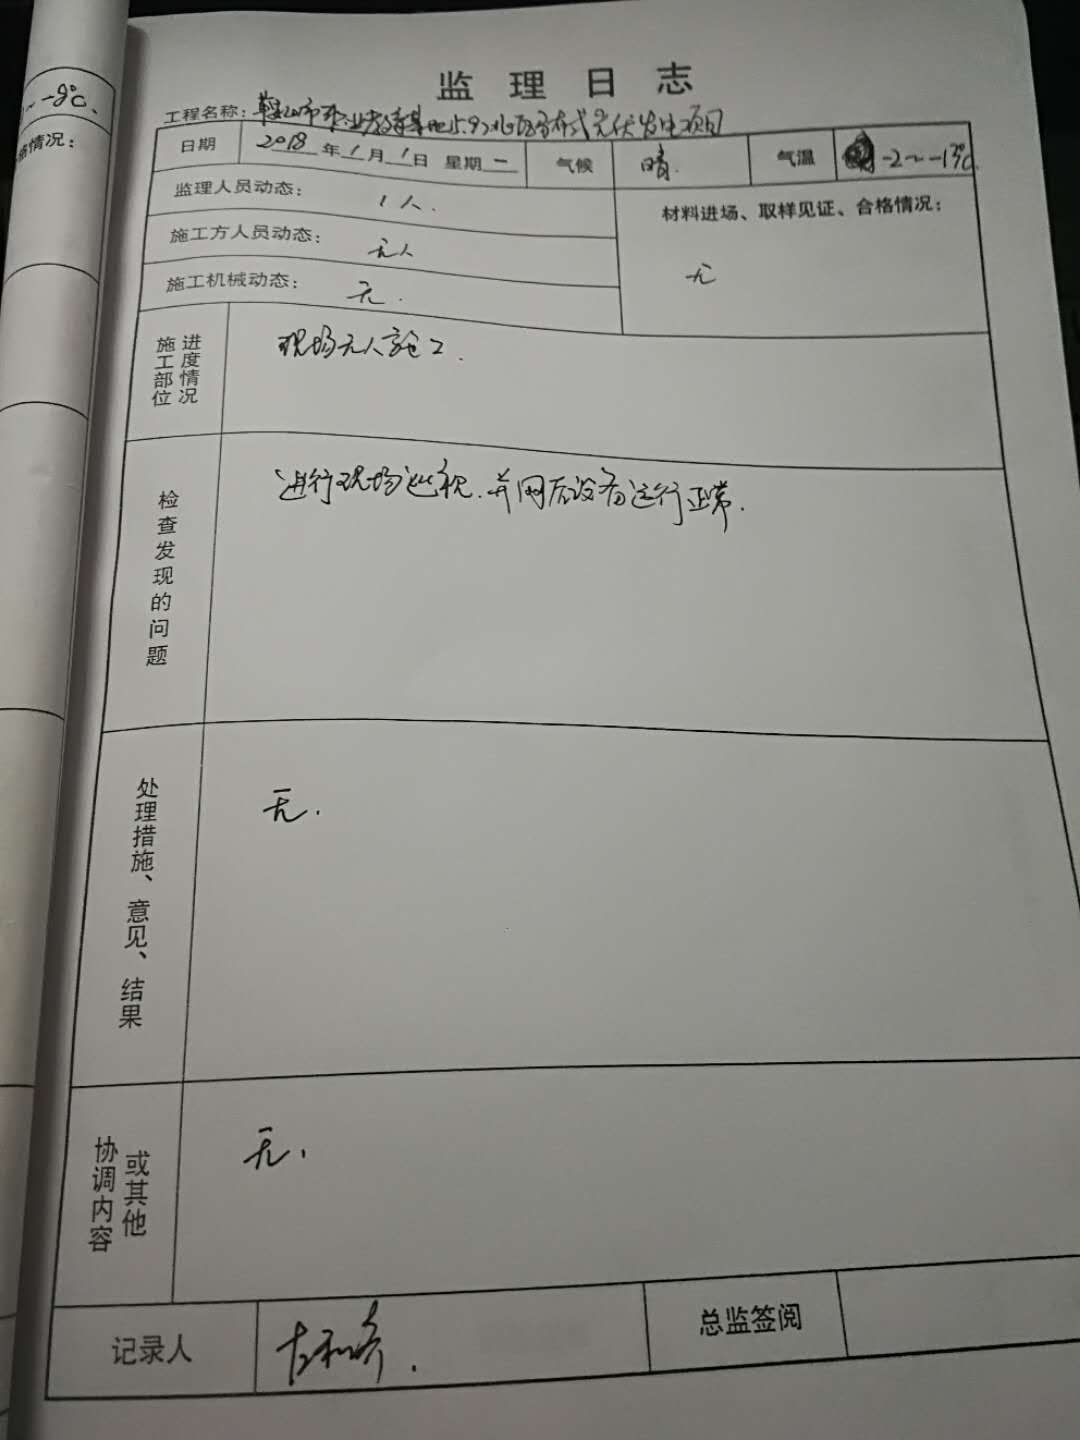 ~-9℃.
格情况：
监理日志
工程名称：鞍山市职业教育基地5.97兆瓦分布式光伏发电项目
日期 2018年1月1日 星期一 气候 晴. 气温 -2~-13℃
监理人员动态： 1人.
材料进场、取样见证、合格情况：
施工方人员动态： 无人
无
施工机械动态： 无.
施工部位进度情况
现场无人施工.
检查发现的问题
进行现场巡视.并网后设备运行正常.
处理措施、意见、结果
无.
协调内容或其他
无.
记录人
总监签阅